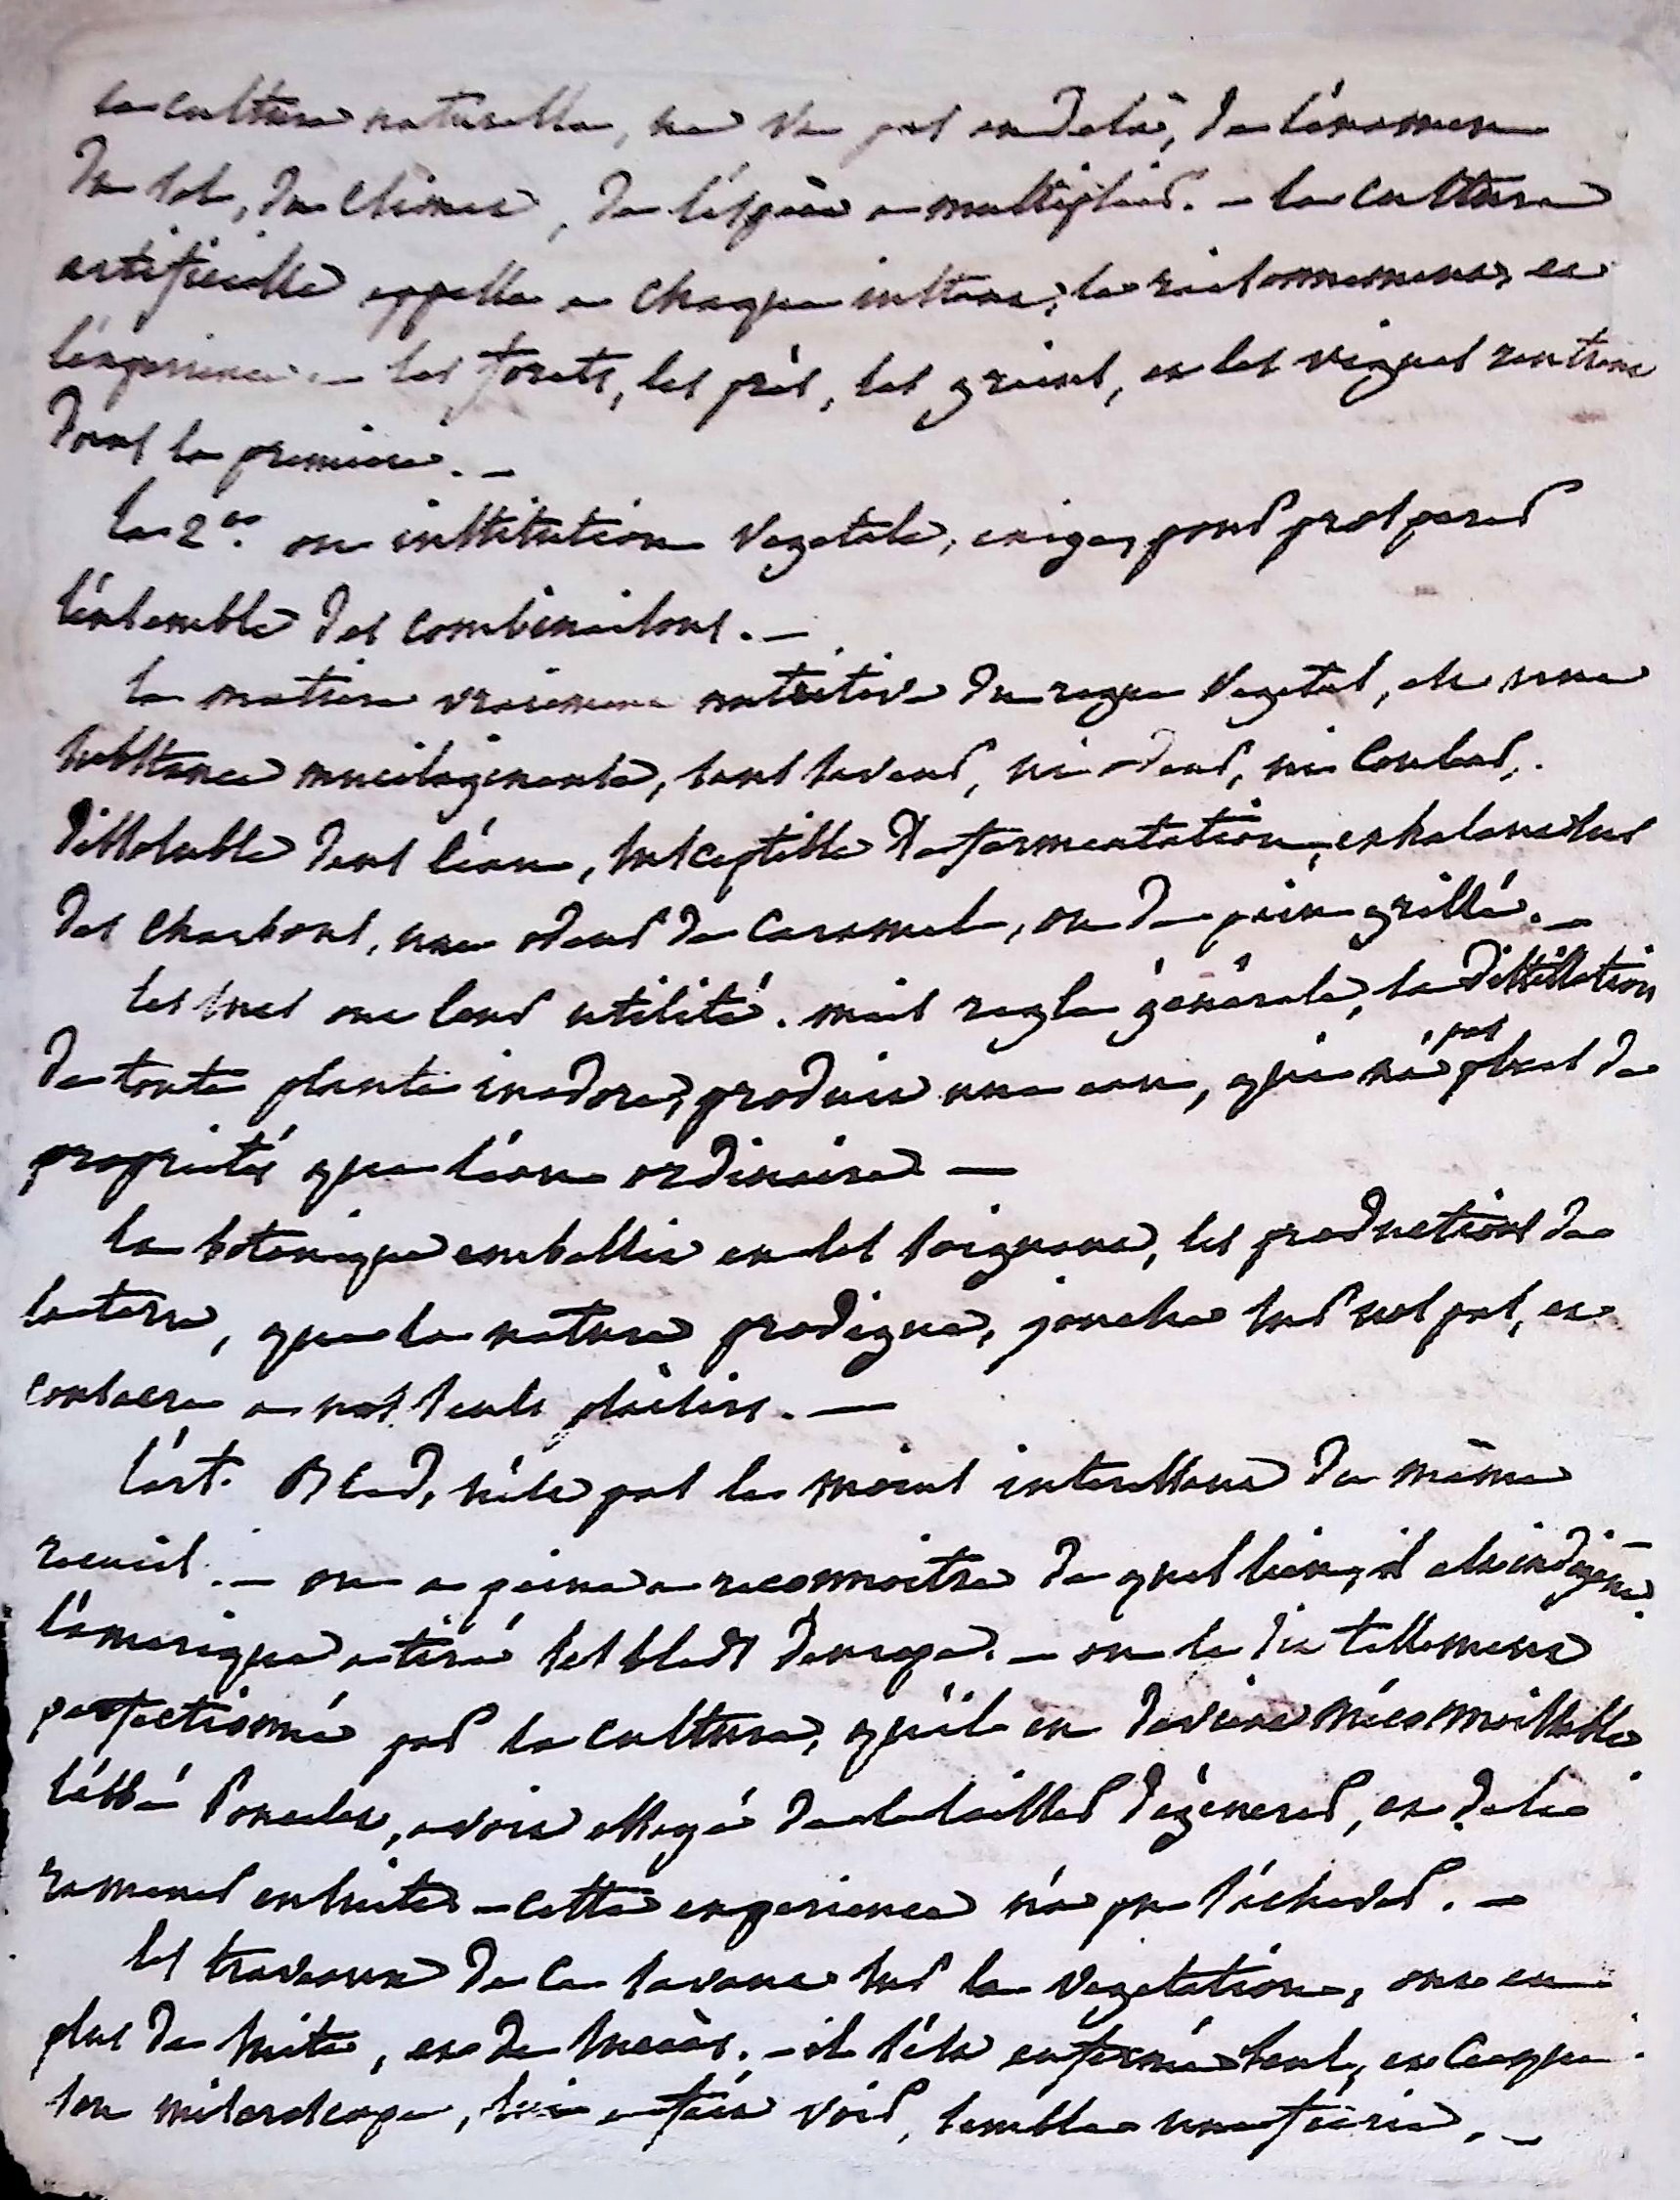 la culture naturelle, ne va pas au delà, de l'examen
du sol, du climat, de l'espèce a multiplier. – la culture
artificielle appelle a chaque instant, le raisonnement, et
l'experience. – les forets, les prés, les grains, et les vignes rentrent
dans la premiere. –
la 2e. ou institution vegetale, exige, pour prosperer
l'ensemble des combinaisons. –
la matiere vraiment nutritive du regne vegetal, est une
substance mucilagineuse, sans saveur, ni odeur, ni couleur,
dissoluble dans l'eau, susceptible de fermentation, exhalant sur
des charbons, une odeur de caramel, ou de pain grillé. –
les sucs ont leur utilité. mais regle génerale, la distillation
de toute plante inodore, produit une eau, qui n'a pas plus de
proprietés que l'eau ordinaire –
la botanique embellit en les soignant, les productions de
la terre, que la nature prodigue, jonche sur nos pas, et
consacre a nos seuls plaisirs. –
l'art. Bled, n'est pas le moins interessant du même
recueil. – on a peine a reconnoitre de quel lieu, il est indigene.
l'amerique a tiré ses bleds d'europe. – on le dit tellement
perfectionné par la culture, qu'il en devient méconnoissable
l'abbé Poncelet, avoit essayé de le laisser dégenerer, et de le
ramener ensuite – cette experience n'a pu s'achever. –
les travaux de ce savant sur la vegetation, ont eu
plus de suite, et de succès. – il s'est enfermé seul, et ce que
son microscope, lui a fait voir, semble une féerie. –